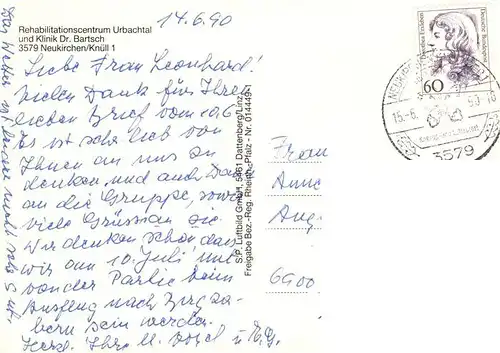 Rehabilitationscentrum Urbachtal
und Klinik Dr. Bartsch
3579 Neukirchen/Knüll 1
14.6.90
Liebe Frau Leonhard!
Vielen Dank für Ihren
lieben Brief vom 10.6
Es ist sehr lieb von
Ihnen an uns zu
denken, und auch Dank
an die Gruppe, sowie
viele Grüsse an sie
Wir denken schon daran
wir am 10. Juli mit
von der Partie beim
Ausflug nach
bern sein werden.
Herzl. Ihre U. u. E.G.
Das Wetter ist
nicht sehr gut.
S/P. Luftbild GmbH, 5461 Dattenberg/Linz
Freigabe Bez.-Reg. Rheinh.-Pfalz - Nr. 014449-1
Frau
Anne
Aug.
6900
Dorothea Erxleben
Deutsche Bundespost
60
15.-6. 90
3579